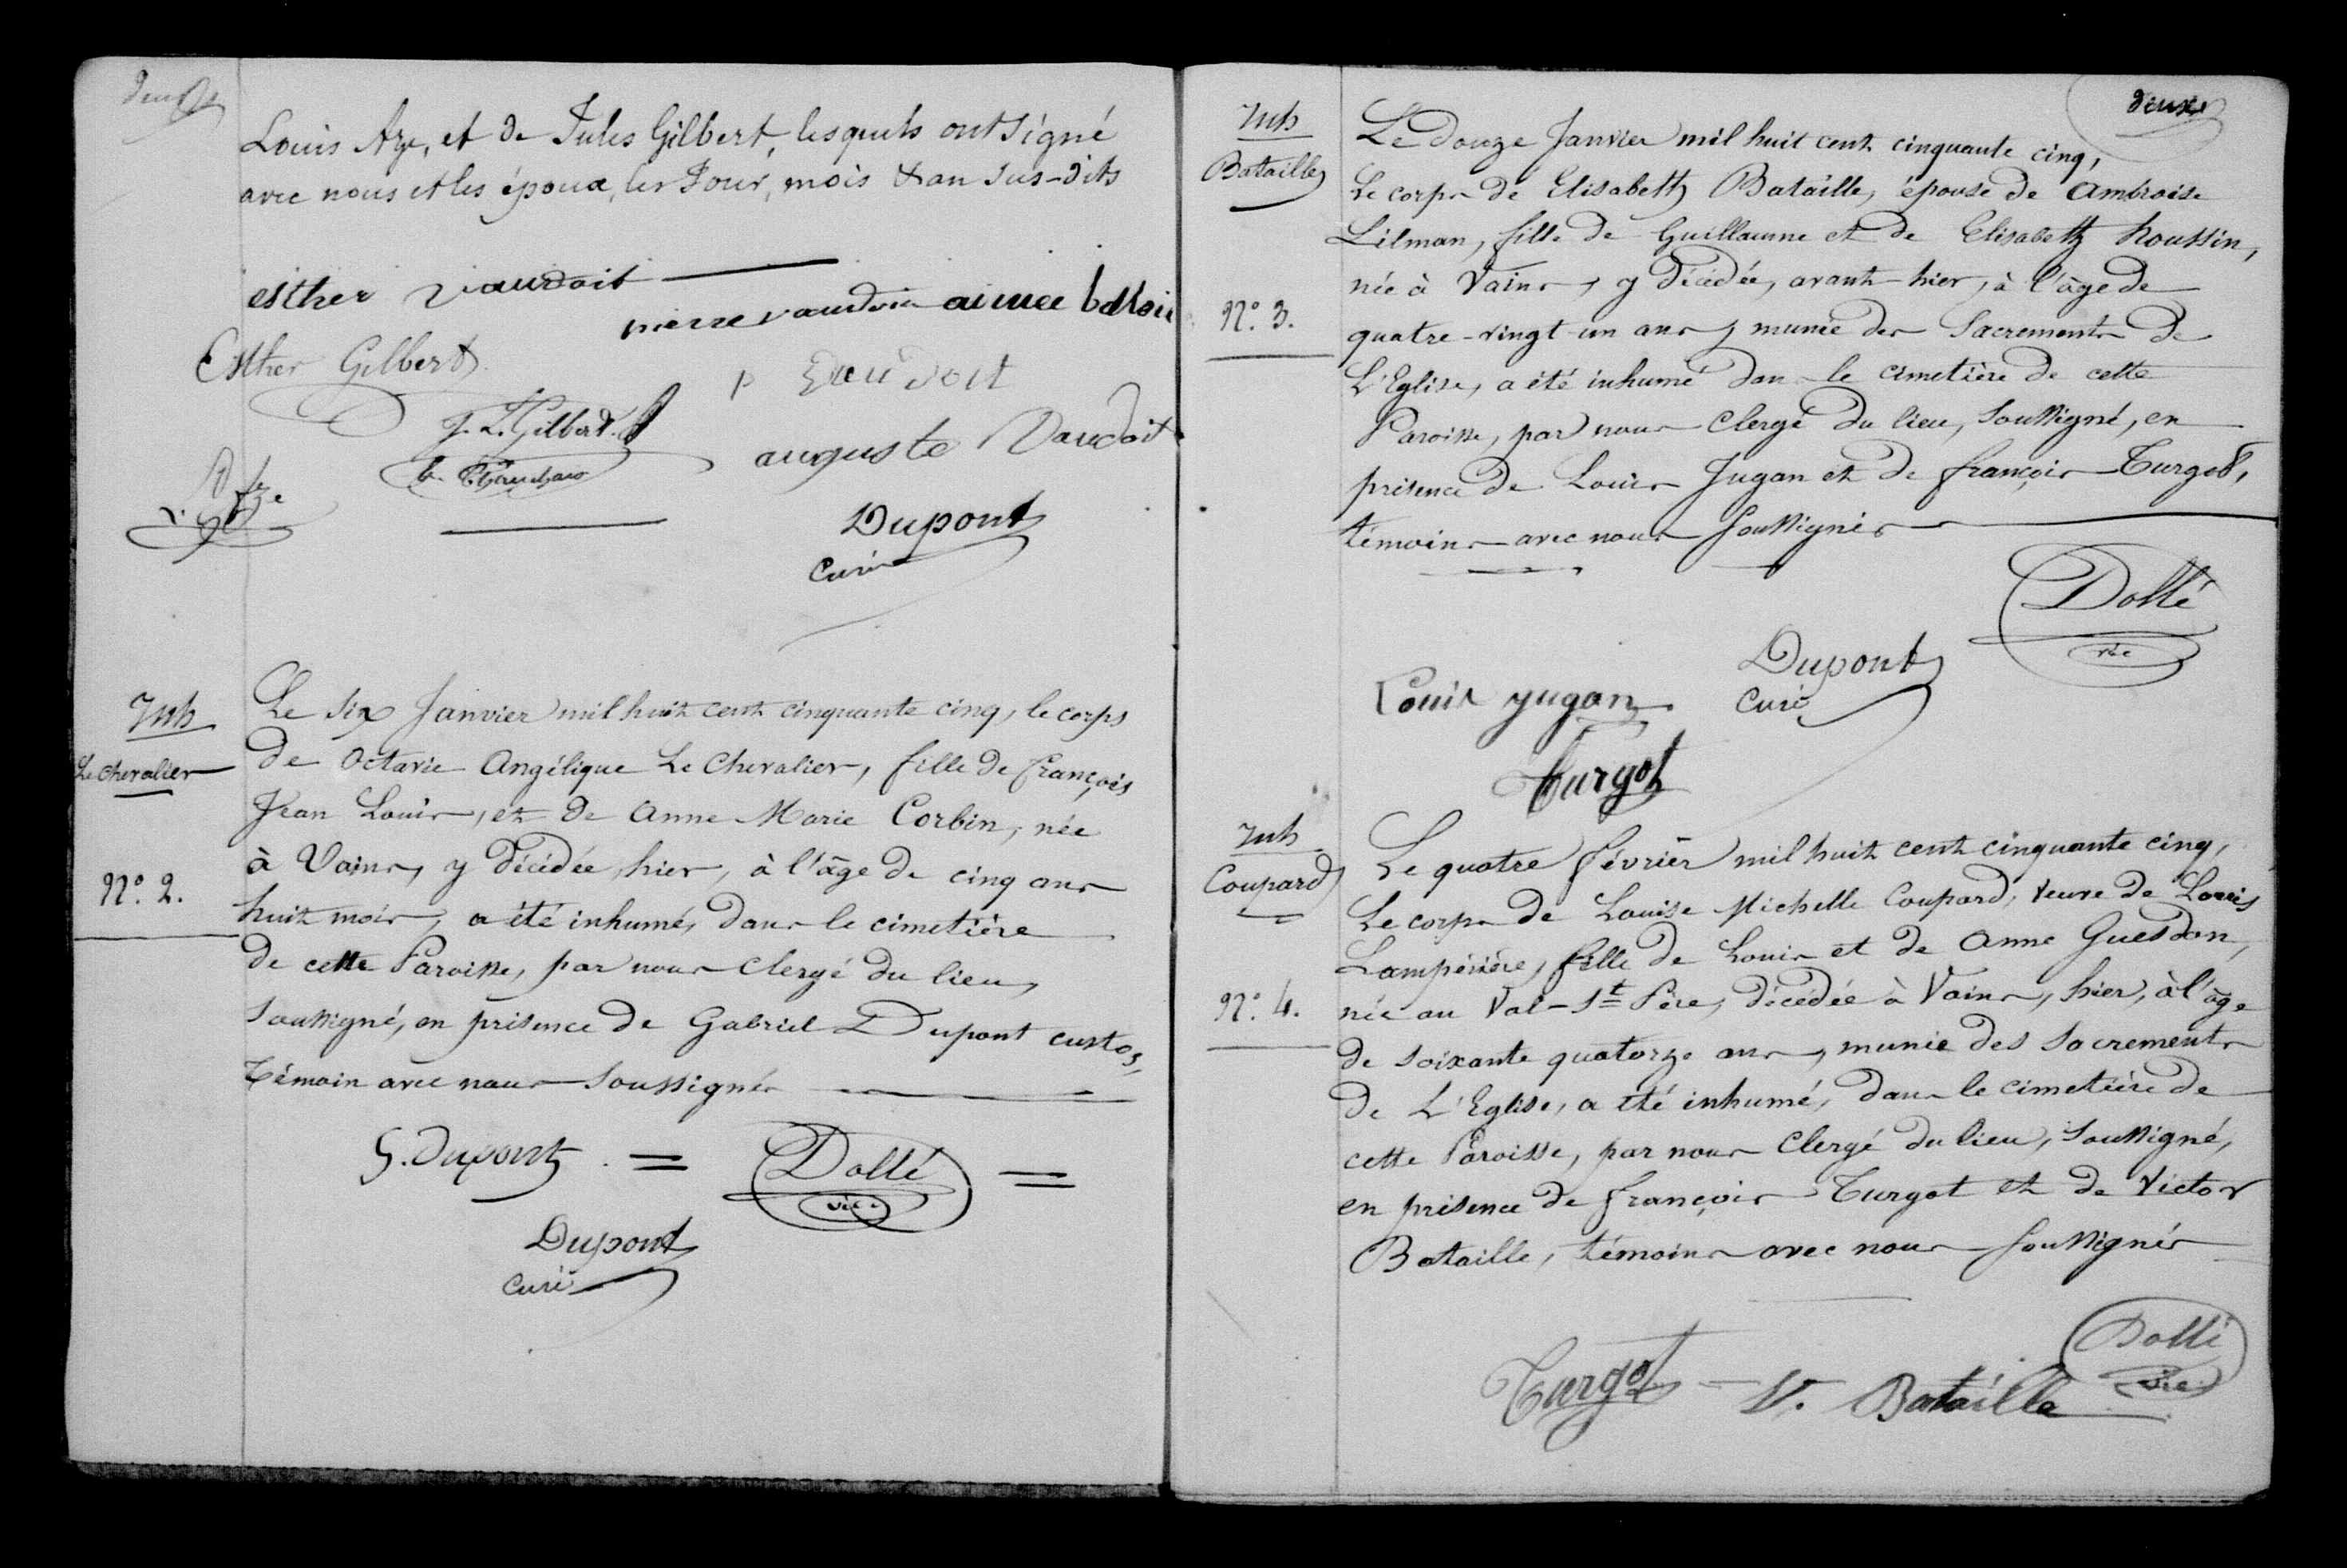 Louis Aze, et de Jules Gilbert, lesquels ont signé
avec nous et les époux, les Jour, mois & an sus-dits
esther vaudoit
pierre vaudoit aimee
Esther Gilbert
p vaudoit
J. L. Gilbert
auguste Vaudoit
Aze
Dupont
Curé
Inh
Le Chevalier
N° 2.
Le six Janvier mil huit cent cinquante cinq, le corps
de Octavie Angélique Le Chevalier, fille de françois
Jean Louis, et de Anne Marie Corbin, née
à Vains, y décédée, hier, à l'âge de cinq ans
huit mois, a été inhumé, dans le cimetière
de cette Paroisse, par nous Clergé du lieu,
Soussigné, en présence de Gabriel Dupont custos,
Témoin avec nous soussignés
G. Dupont = Dollé =
vic
Dupont
Curé
deux
Inh
Bataille
N° 3.
Le douze Janvier mil huit cent cinquante cinq,
Le corps de Elisabeth Bataille, épouse de Ambroise
Lilman, fille de Guillaume et de Elisabeth houssin,
née à Vains, y décédée, avant-hier, à l'âge de
quatre-vingt-un ans, munie des Sacrements de
L'Eglise, a été inhumé dans le cimetière de cette
Paroisse, par nous Clergé du lieu, Soussigné, en
présence de Louis Jugan et de françois Turgot,
témoins avec nous soussignés
Dollé
vic
Dupont
Louis jugan Curé
Turgot
Inh
Coupard
N° 4.
Le quatre février mil huit cent cinquante cinq,
Le corps de Louise Michelle Coupard, veuve de Louis
Lampérière, fille de Louis et de Anne Guesdon,
née au Val-St Père, décédée à Vains, hier, à l'âge
de soixante quatorze ans, munie des sacrements
de L'Eglise, a été inhumé, dans le cimetière de
cette Paroisse, par nous Clergé du lieu, soussigné,
en présence de françois Turgot et de Victor
Bataille, témoins avec nous soussignés
Dollé
vic
Turgot — V. Bataille